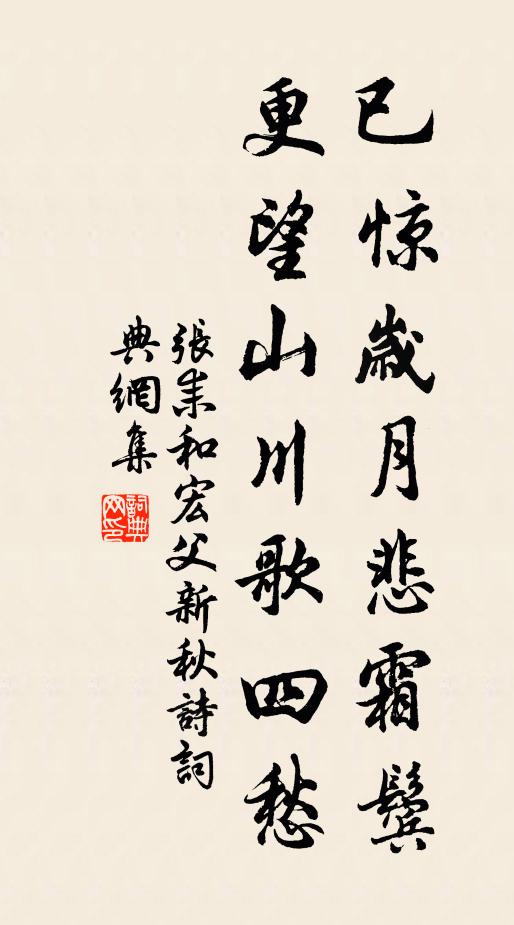 已惊歲月悲霜鬓
更望山川歌四愁
張耒和宏父新秋詩詞
典網集
詞典网印